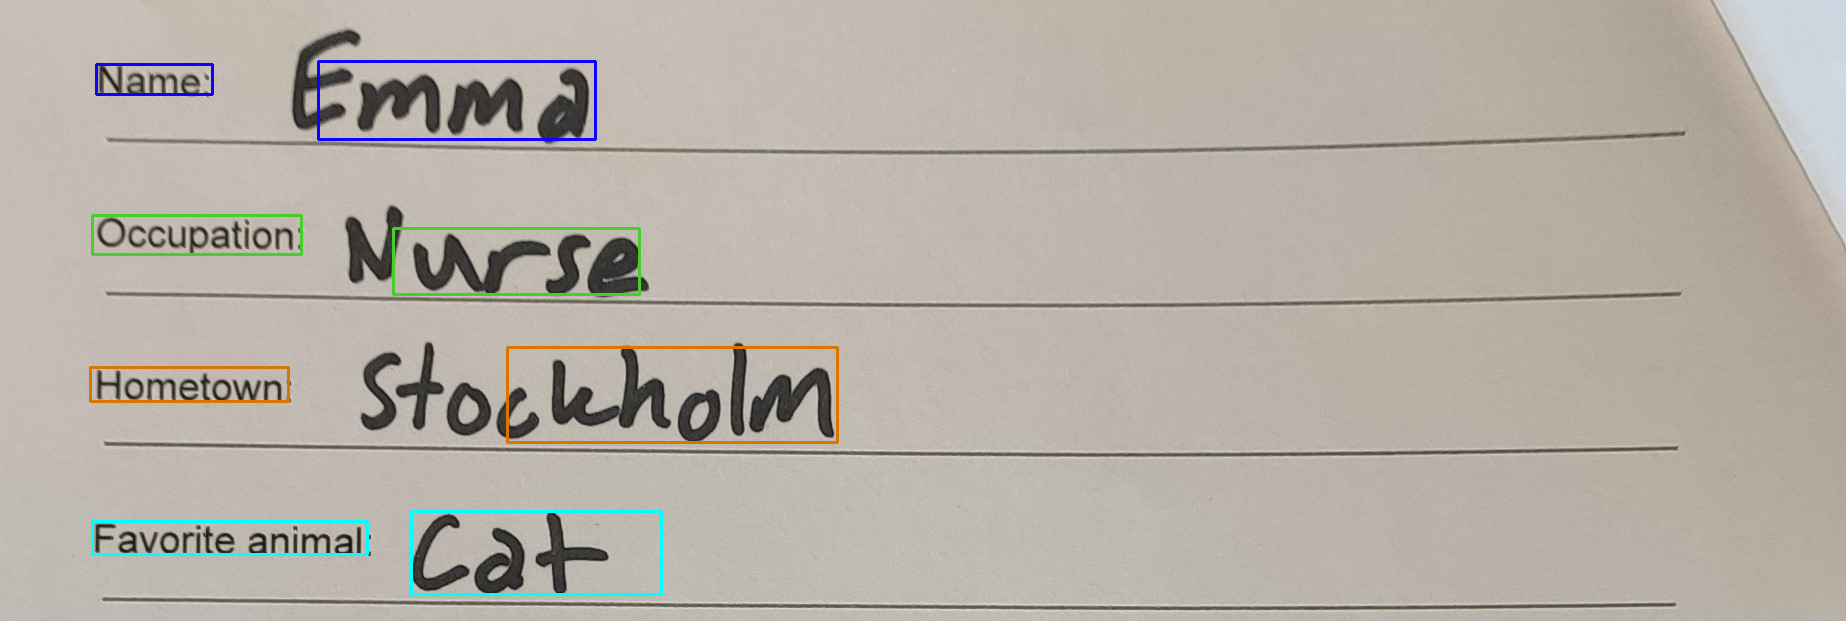 Name: Emma
Occupation: Nurse
Hometown: Stockholm
Favorite animal: Cat